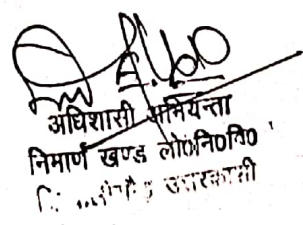 अधिशासी अभियन्ता
निमार्ण खण्ड लो०नि०वि०
उत्तरकाशी